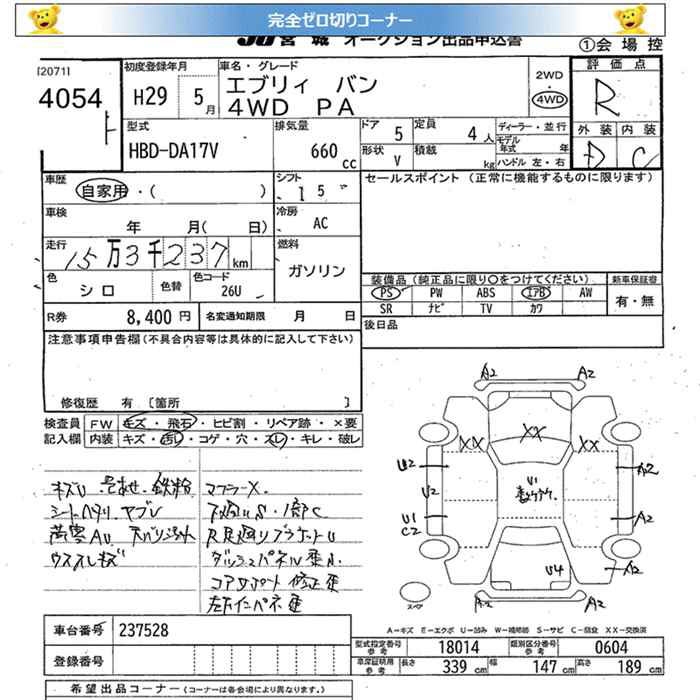 完全ゼロ切りコーナー
JU宮城 オークション出品申込書
①会場控
[2071]
4054
初度登録年月
H29 5月
車名・グレード
エブリィ バン
4WD PA
2WD
4WD
評価点
R
型式
HBD-DA17V
排気量
660 cc
ドア 5
定員 4人
形状 V
積載 kg
ディーラー・並行
モデル年式 年
ハンドル 左・右
外装 内装
D C
車歴
自家用・( )
シフト
I 5
セールスポイント(正常に機能するものに限ります)
車検
年 月( 日)
冷房
AC
走行
15万3千237km
燃料
ガソリン
色
シロ
色替
色コード
26U
装備品(純正品に限り○をつけてください)
新車保証書
PS PW ABS エアB AW
SR ナビ TV カワ
有・無
R券 8,400円
名変通知期限 月 日
後日品
注意事項申告欄(不具合内容等は具体的に記入して下さい)
修復歴 有 [箇所 ]
検査員記入欄
FW キズ・飛石・ヒビ割・リペア跡・×要
内装 キズ・汚レ・コゲ・穴・スレ・キレ・破レ
キズU 鉄粉
シートヘタリ ヤブレ
ウススレキズ
マフラーX
下廻りS・1部C
ダッシュパネル
コアサポート 修正
A2 A2
XX XX XX
U2 A2
U2 U1
U1 A2
C2
U4 A2
A2 A2
スペア
A-キズ E-エクボ U-凹み W-補修跡 S-サビ C-腐食 XX-交換済
車台番号 237528
登録番号
型式指定番号 参考 18014
類別区分番号 参考 0604
車庫証明用 参考 長さ 339cm 幅 147cm 高さ 189cm
希望出品コーナー(コーナーは各会場により異なります。)